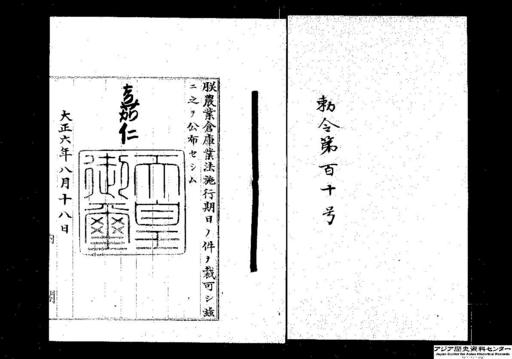 勅令第百十号
朕農業倉庫業法施行期日ノ件ヲ裁可シ茲
ニ之ヲ公布セシム
嘉仁
天皇御璽
大正六年八月十八日
内閣
アジア歴史資料センター
Japan Center for Asian Historical Records